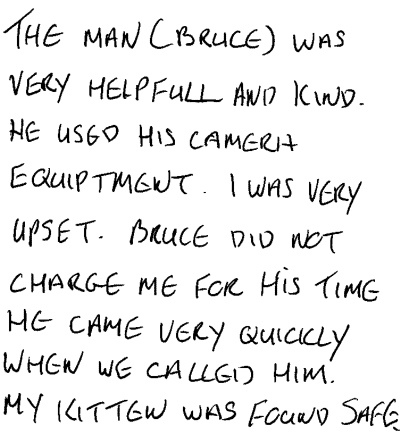 THE MAN (BRUCE) WAS
VERY HELPFULL AND KIND.
HE USED HIS CAMERA
EQUIPTMENT. I WAS VERY
UPSET. BRUCE DID NOT
CHARGE ME FOR HIS TIME
HE CAME VERY QUICKLY
WHEN WE CALLED HIM.
MY KITTEN WAS FOUND SAFE.